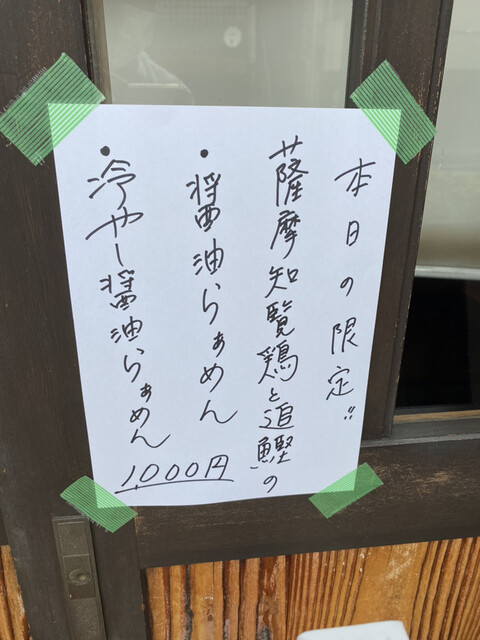 本日の限定!!
薩摩知覧鶏と追鰹の
・醤油らぁめん
・冷やし醤油らぁめん
1,000円